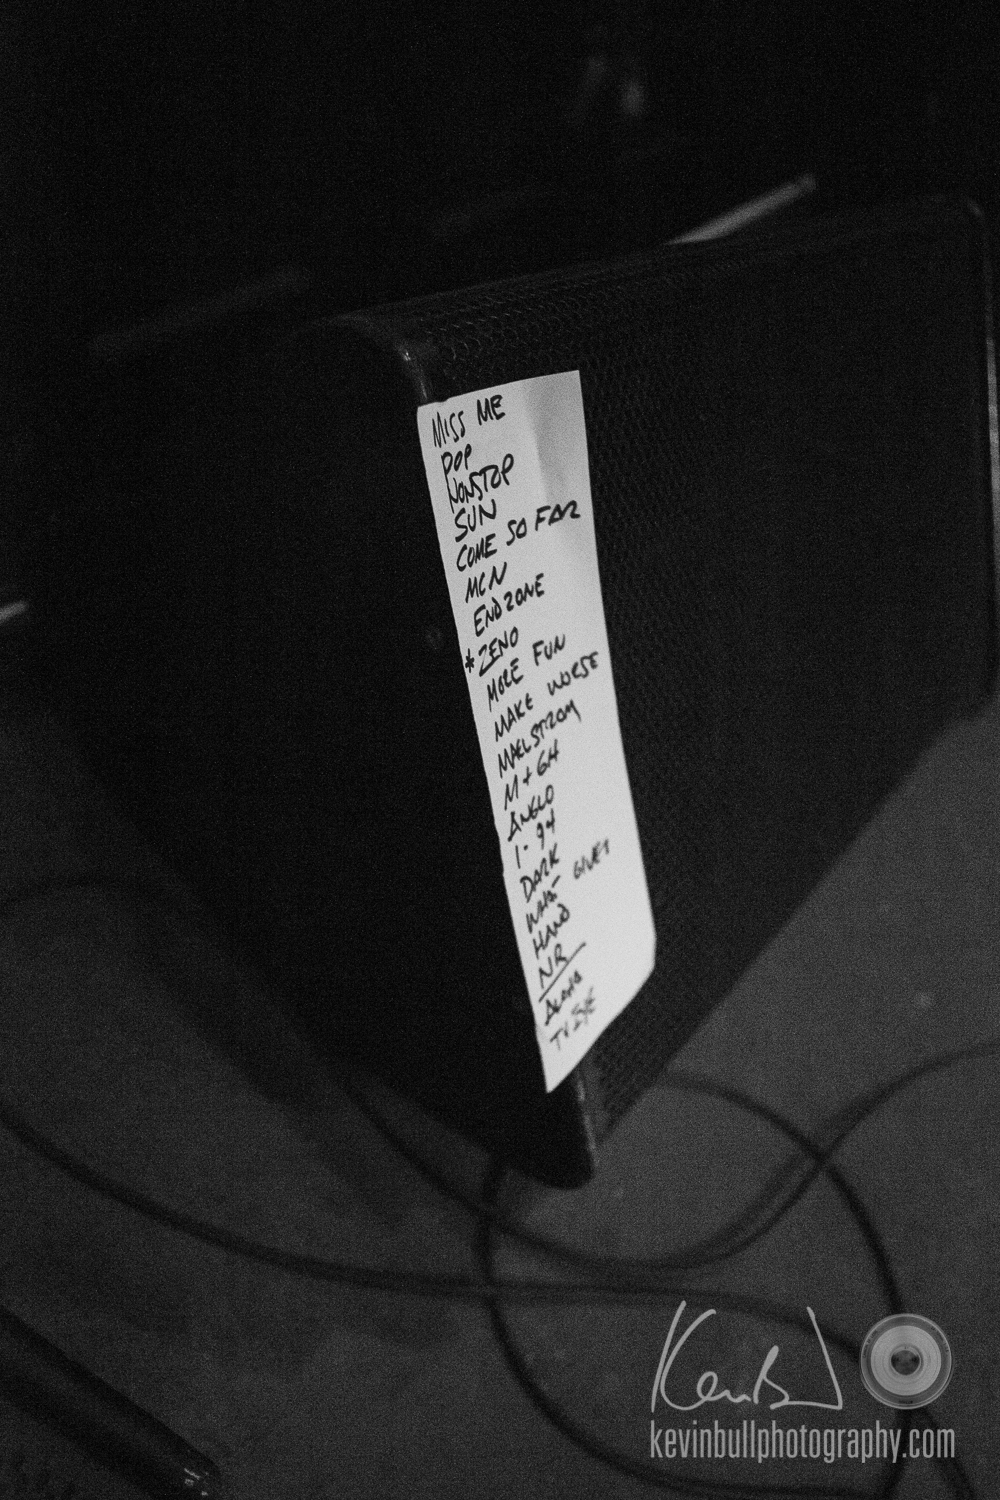 MISS ME
POP
NONSTOP
SUN
COME SO FAR
MCN
ENDZONE
* ZENO
MORE FUN
MAKE WORSE
MAELSTROM
M + GH
ANGLO
1-94
DARK
WHAT GIVES
HAND
NR
ALOHA
TV EYE
kevinbullphotography.com